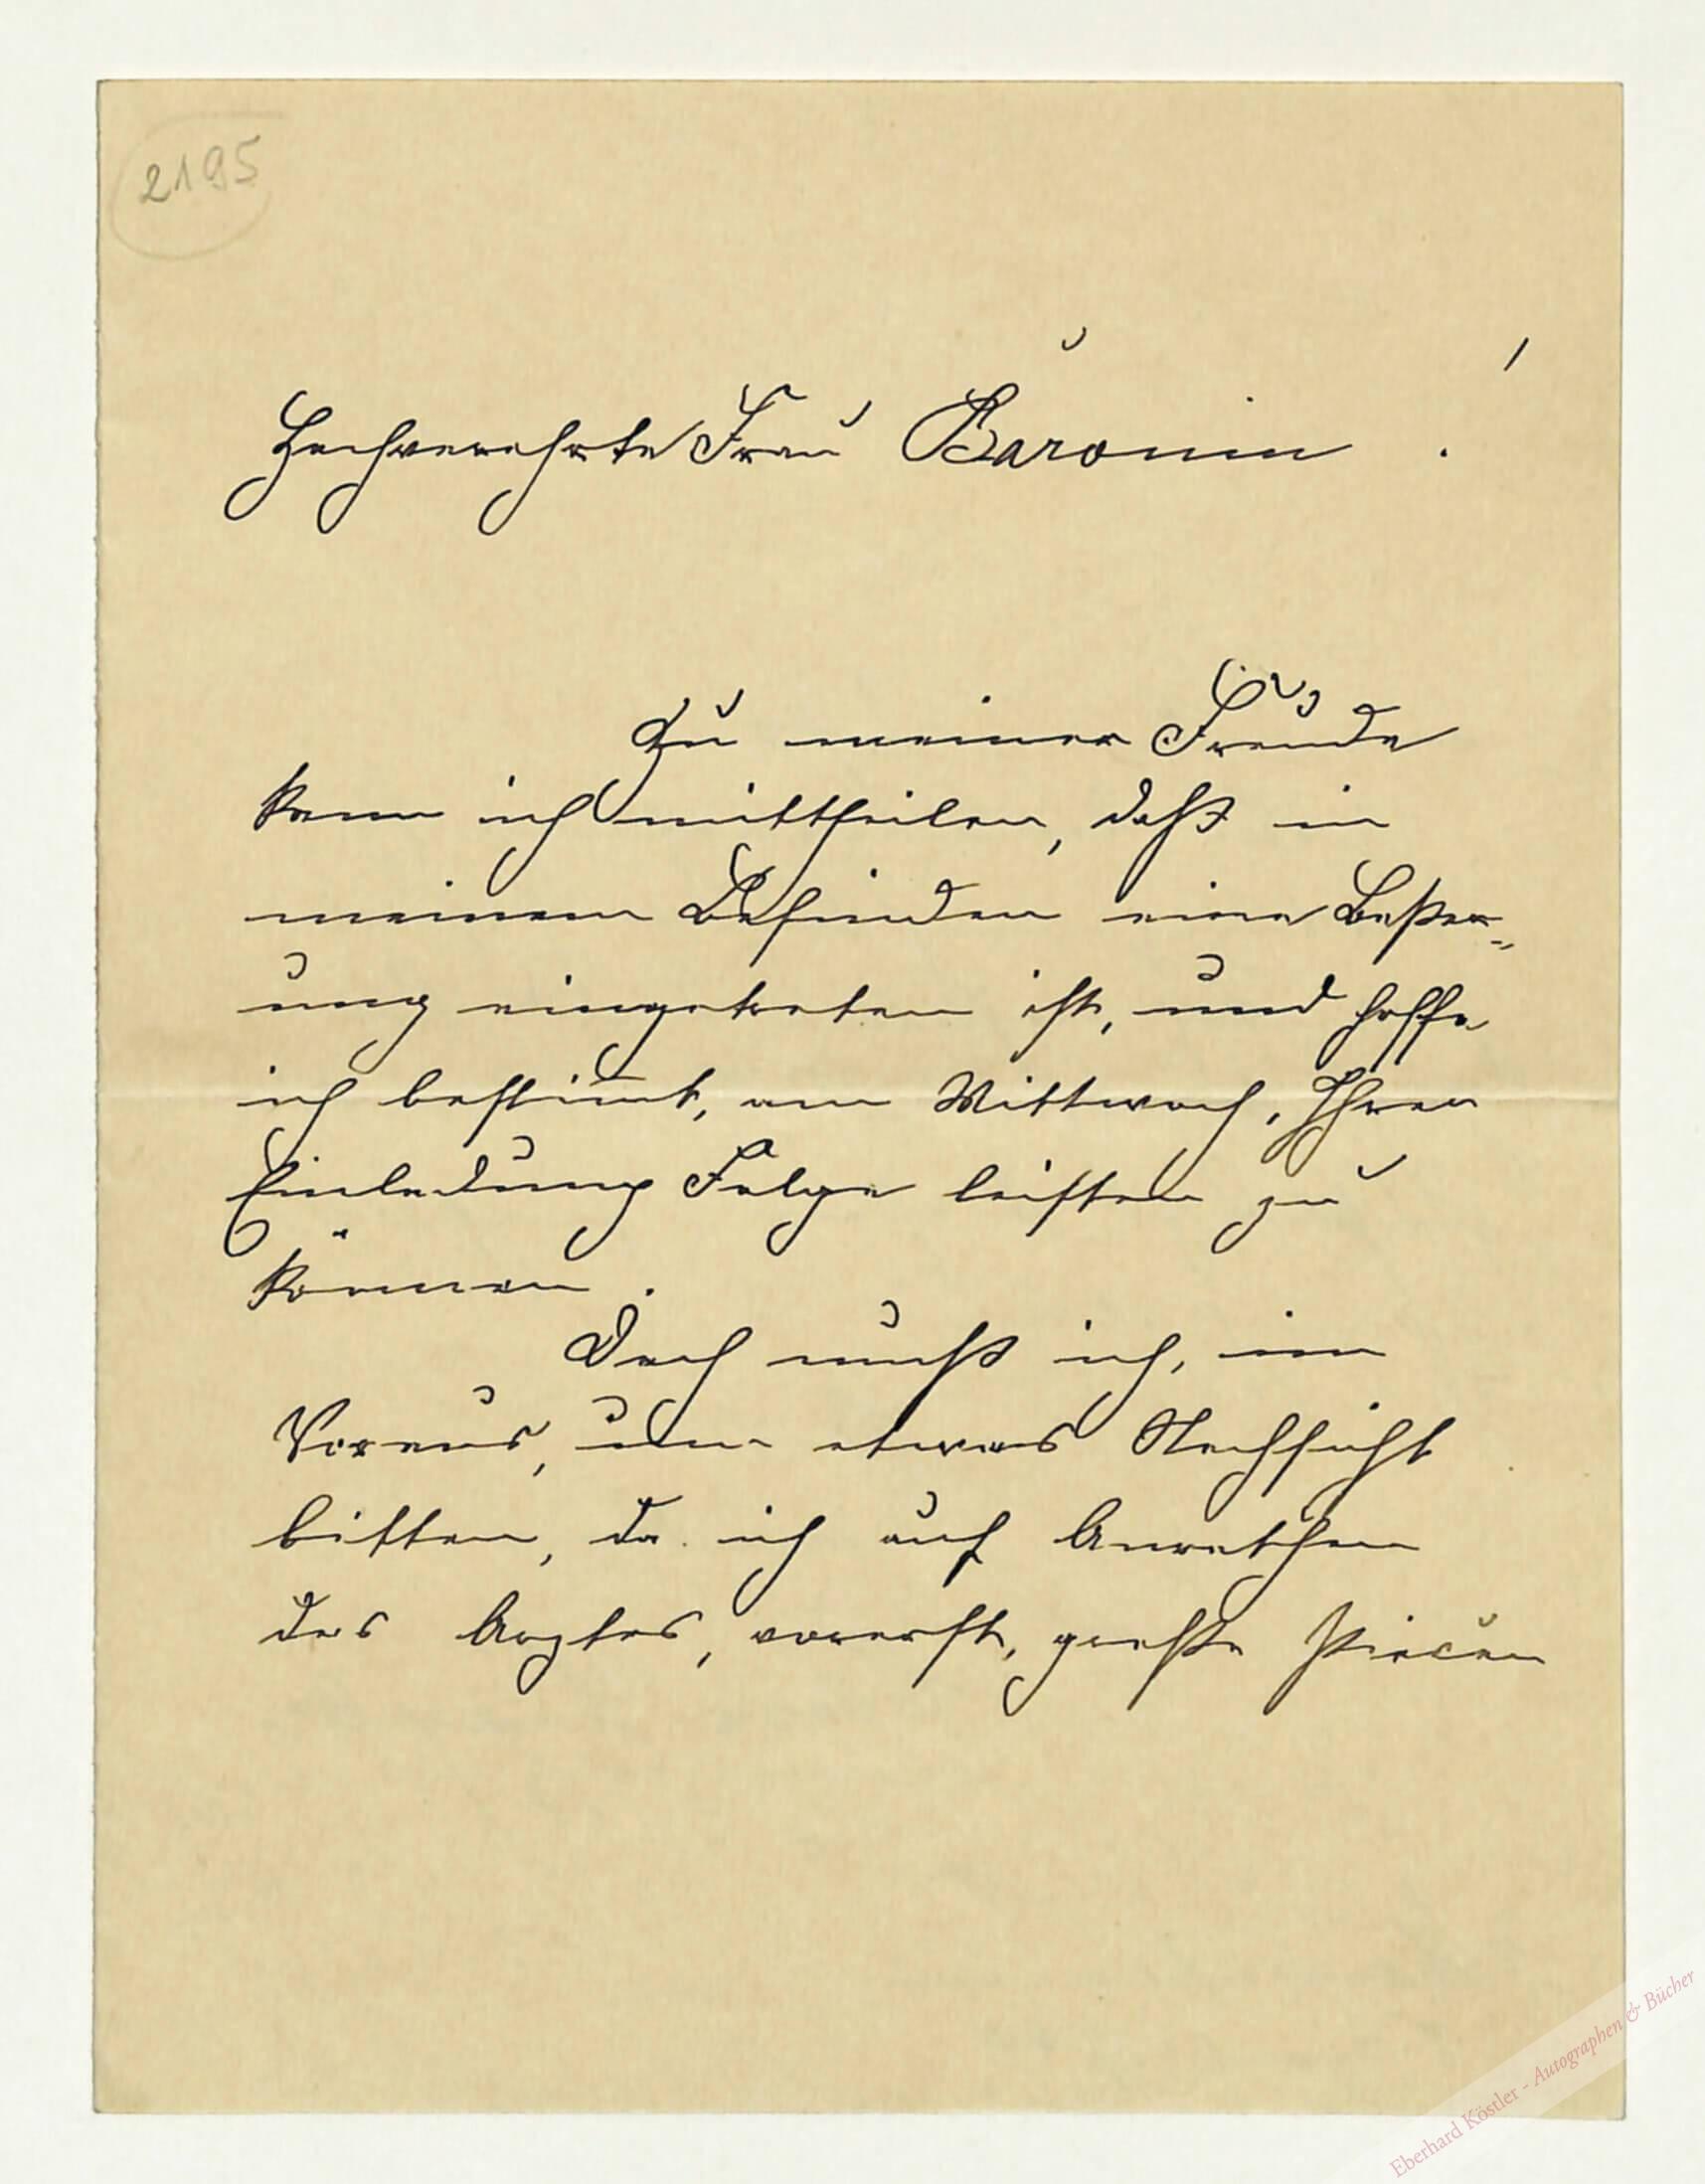 2195
Hochverehrte Frau Baronin !
Zu meiner Freude
kann ich mittheilen, daß in
meinem Befinden eine Beßer=
ung eingetreten ist, und hoffe
ich bestim̄t, am Mittwoch, Ihrer
Einladung Folge leisten zu
können.
Doch muß ich, im
Voraus, um etwas Nachsicht
bitten, da ich auf Anrathen
des Arztes, vorerst, große Piècen
Eberhard Köstler - Autographen & Bücher